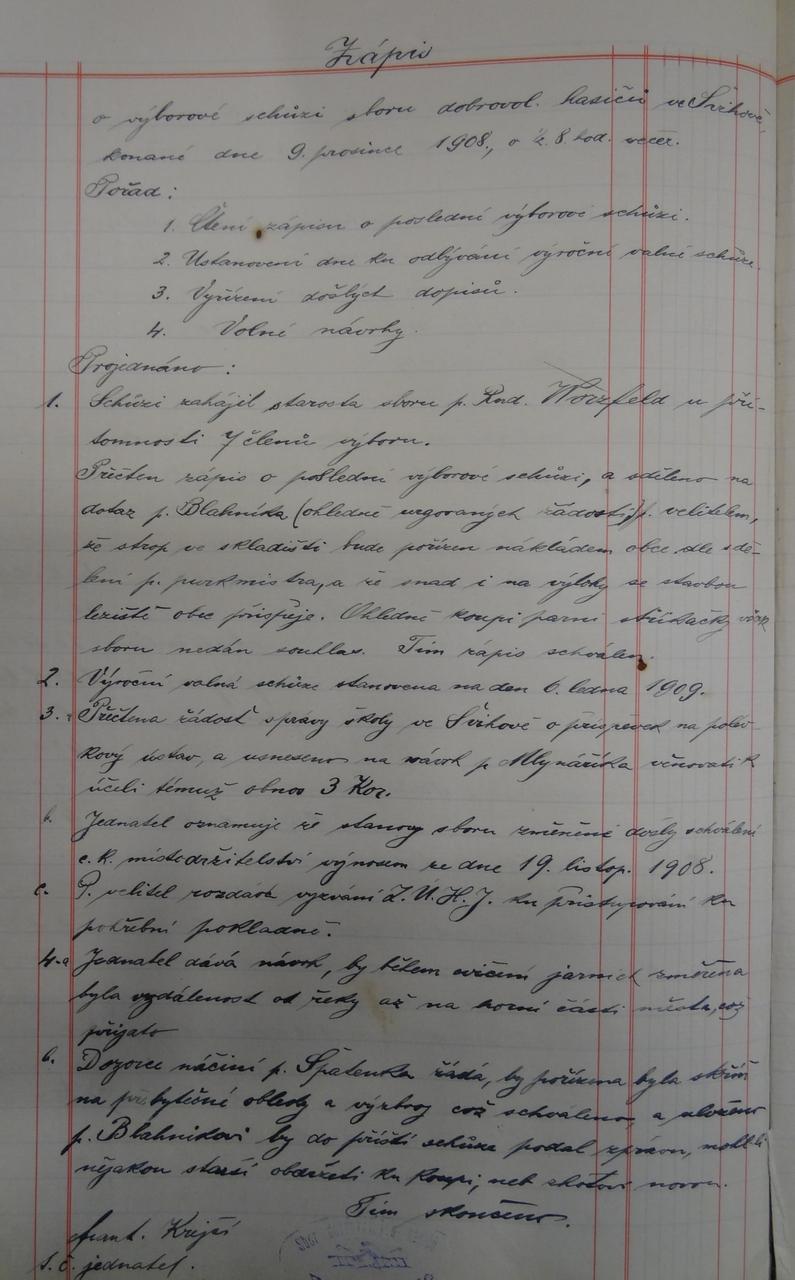 Zápis
o výborové schůzi sboru dobrovol. hasičů ve Švihově,
konané dne 9. prosince 1908, o ½ 8. hod. večer.
Pořad:
1. Čtení zápisu o poslední výborové schůzi.
2. Ustanovení dne ku odbývání výroční valné schůze.
3. Vyřízení došlých dopisů.
4. Volné návrhy.
Projednáno:
1. Schůzi zahájil starosta sboru p. Rud. Worzfeld u pří-
tomnosti 7 členů výboru.
Přečten zápis o poslední výborové schůzi, a sděleno na
dotaz p. Blahníka (ohledně urgovaných žádostí,) p. velitelem,
že strop ve skladišti bude pořízen nákladem obce dle sdě-
lení p. purkmistra, a že snad i na výlohy se stavbou
leziště obec přispěje. Ohledně koupi parní stříkačky však
sboru nedán souhlas. Tím zápis schválen.
2. Výroční valná schůze stanovena na den 6. ledna 1909.
3. Přečtena žádosť správy školy ve Švihově o příspěvek na polév-
kový ústav, a usneseno na návrh p. Mlynáříka věnovati k
účeli témuž obnos 3 Kor.
b. Jednatel oznamuje že stanovy sboru změněné došly schválení
c. k. místodržitelství výnosem ze dne 19. listop. 1908.
c. P. velitel rozdává vyzvání Z. Ú. H. J. ku přistupování ku
pohřební pokladně.
4. a Jednatel dává návrh, by během cvičení jarních změřena
byla vzdálenost od řeky až na horní části města, což
přijato
b. Dozorce náčiní p. Špatenka žádá, by pořízena byla skříň
na přebytečné obleky a výzbroj což schváleno, a uloženo
p. Blahníkovi by do příští schůze podal zprávu, mohl-li
nějakou starší obdržeti ku koupi, neb zhotov novou.
Tím skončeno.
Frant. Krejčí
t. č. jednatel.